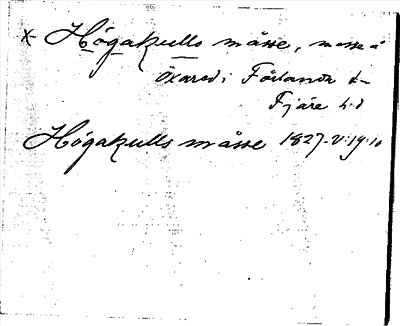 x Högakulls måsse, mosse å
Öxared i Förlanda sn
Fjäre hd
Högakulls måsse 1827-V-19-10